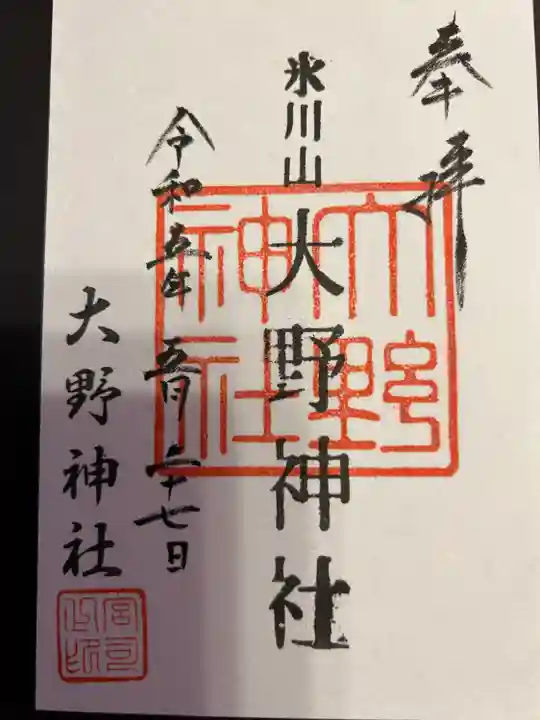 奉拝
氷川山 大野神社
大野神社
令和五年 五月二十七日
大野神社
宮司之印